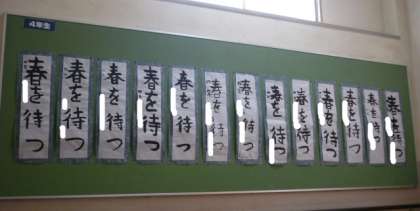 4年生
春を待つ
春を待つ
春を待つ
春を待つ
春を待つ
春を待つ
春を待つ
春を待つ
春を待つ
春を待つ
春を待つ
春を待つ
春を待つ